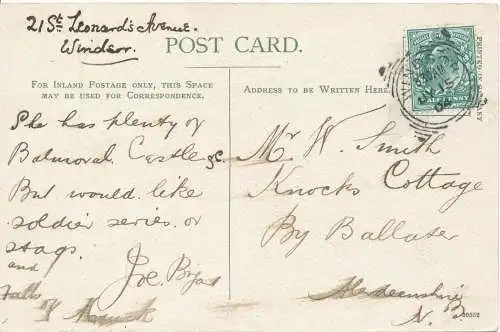 21 St Leonard's Avenue.
Windsor.
POST CARD.
FOR INLAND POSTAGE ONLY, THIS SPACE
MAY BE USED FOR CORRESPONDENCE.
ADDRESS TO BE WRITTEN HERE.
PRINTED IN
HALFPENNY
She has plenty of
Balmoral Castle &c.
But would like
soldier series or
stags.
and
Falls of
Joe
Mr W. Smith
Knocks Cottage
By Ballater
Aberdeenshire
N. B.